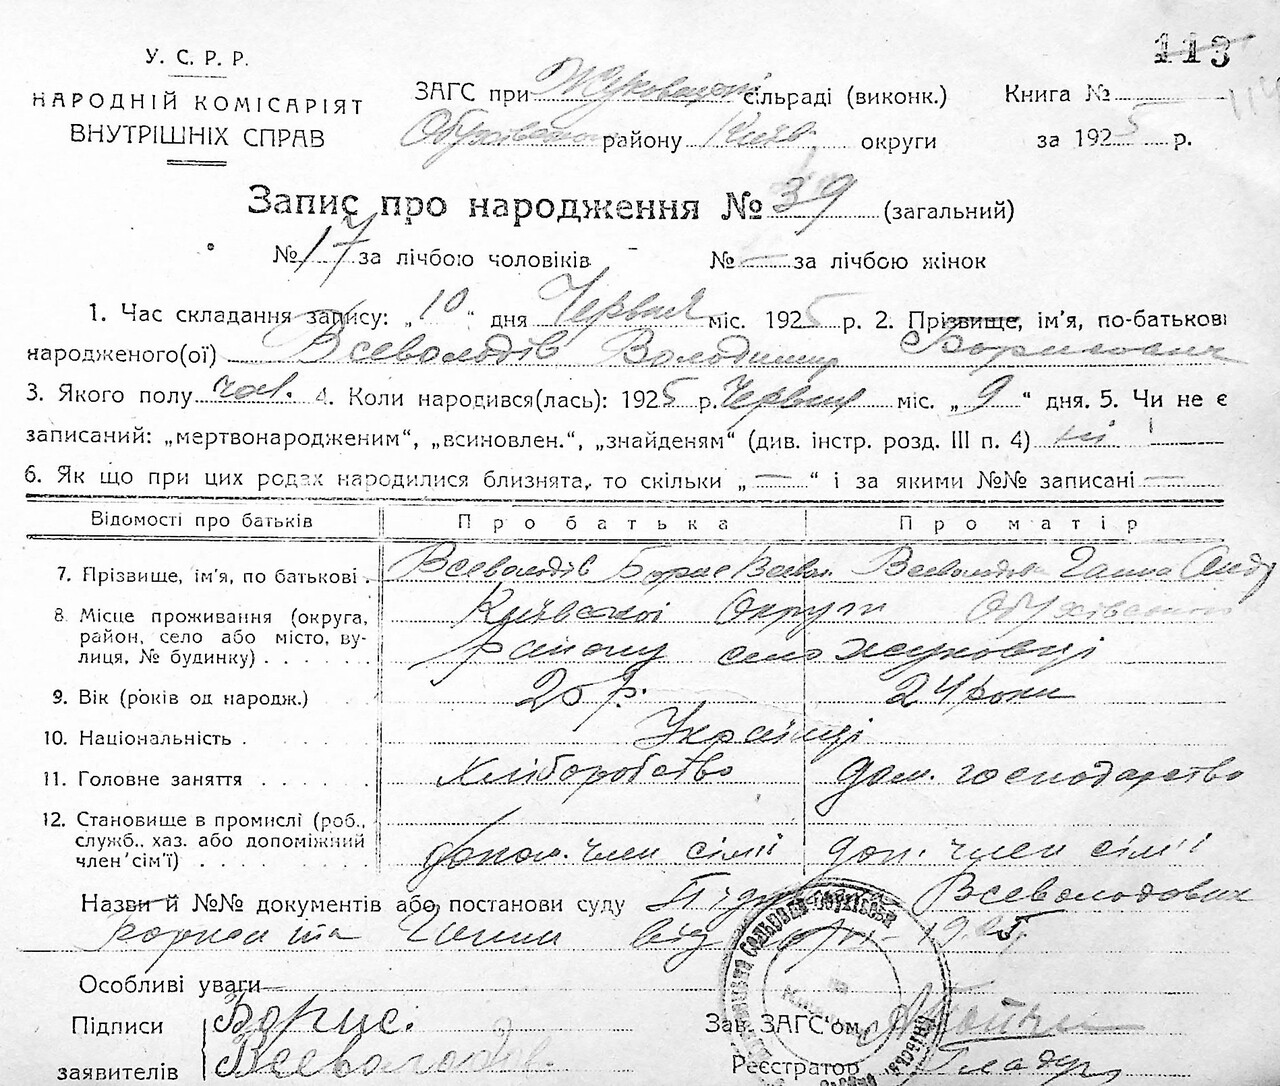 113
114
У. С. Р. Р.
НАРОДНІЙ КОМІСАРІЯТ
ВНУТРІШНІХ СПРАВ
ЗАГС при Жуковецькі сільраді (виконк.) Книга №
Обухівського району Київ. округи за 1925 р.
Запис про народження № 39 (загальний)
№ 17 за лічбою чоловіків № — за лічбою жінок
1. Час складання запису: „10" дня Червня міс. 1925 р. 2. Прізвище, ім'я, по-батькові
народженого(ої) Всеволодів Володимир Борисович
3. Якого полу чол. 4. Коли народився(лась): 1925 р. Червня міс. „9" дня. 5. Чи не є
записаний: „мертвонародженим", „всиновлен.", „знайденям" (див. інстр. розд. III п. 4) ні
6. Як що при цих родах народилися близнята, то скільки „—" і за якими №№ записані —
Відомості про батьків Про батька Про матір
7. Прізвище, ім'я, по батькові Всеволодів Борис Всевол. Всеволодів Ганна Анд
8. Місце проживання (округа, Київської Округи Обухівського
район, село або місто, ву-
лиця, № будинку) району село Жуковці
9. Вік (років од народж.) 25 р. 24 роки
10. Національність Українці
11. Головне заняття Хліборобство дом. господарство
12. Становище в промислі (роб.,
служб., хаз. або допоміжний
член сім'ї) допом. член сімії доп. член сімії
Назви й №№ документів або постанови суду Всеволодових
Бориса та Ганни від 1925
Особливі уваги —
Підписи Борис. Зав. ЗАГС'ом
заявителів Всеволодов. Реєстратор